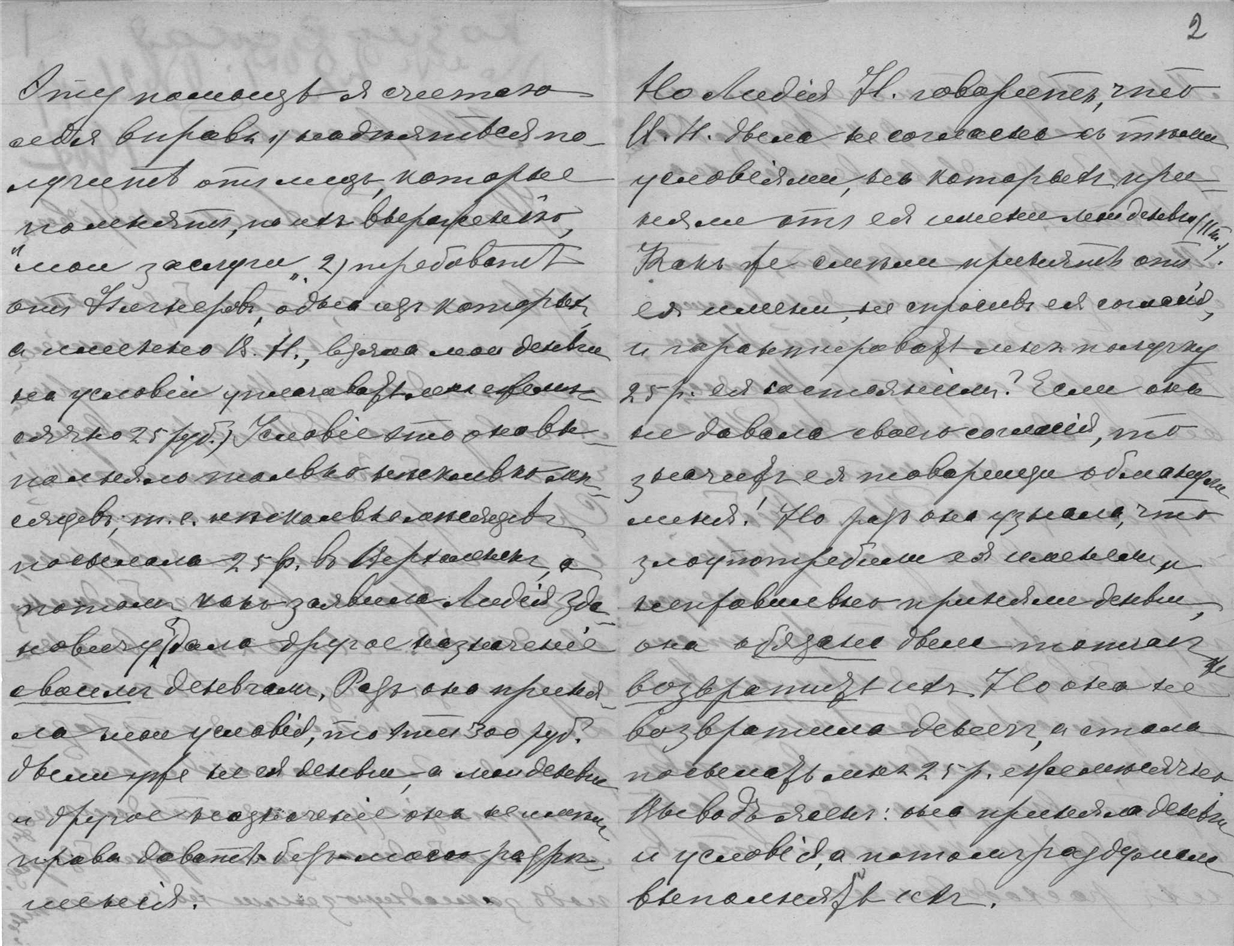 2
Эту помощь я считаю
себя вправѣ 1) надѣяться по-
лучить отъ лицъ, которые
помнятъ, по ихъ выраженію,
"мои заслуги" 2) требовать
отъ одна изъ которыхъ,
а именно В. Н., взяла мои деньги
на условіи уплачивать мнѣ ежемѣ-
сячно 25 руб.) Условіе это она вы-
полняла только нѣсколько мѣ-
сяцевъ, т. е. нѣсколько мѣсяцевъ
посылала 25 р. въ а
потомъ какъ заявила Лидія Зда-
новичу) дала другое назначеніе
своимъ деньгамъ. Разъ она приня-
ла мои условія, то эти 300 руб.
были уже не ея деньги, а мои деньги
и другое назначеніе она не имѣла
права давать безъ моего разрѣ-
шенія.
Но Лидія Н. говоритъ, что
В. Н. была не согласна съ тѣми
условіями, на которыхъ при-
няли отъ ея имени мои деньги
Какъ же смѣли принять отъ
ея имени, не спросивъ ея согласія,
и гарантировать мнѣ получку
25 р. ея состояніемъ? Если она
не давала своего согласія, то
значитъ ея товарищи обманули
меня! Но разъ она узнала, что
злоупотребили ея именемъ и
неправильно приняли деньги,
она обязана была тотчасъ же
возвратить ихъ. Но она не
возвратила денегъ, а стала
посылать мнѣ 25 р. ежемѣсячно
Выводъ ясенъ: она приняла деньги
и условія, а потомъ раздумала
выполнять ихъ.